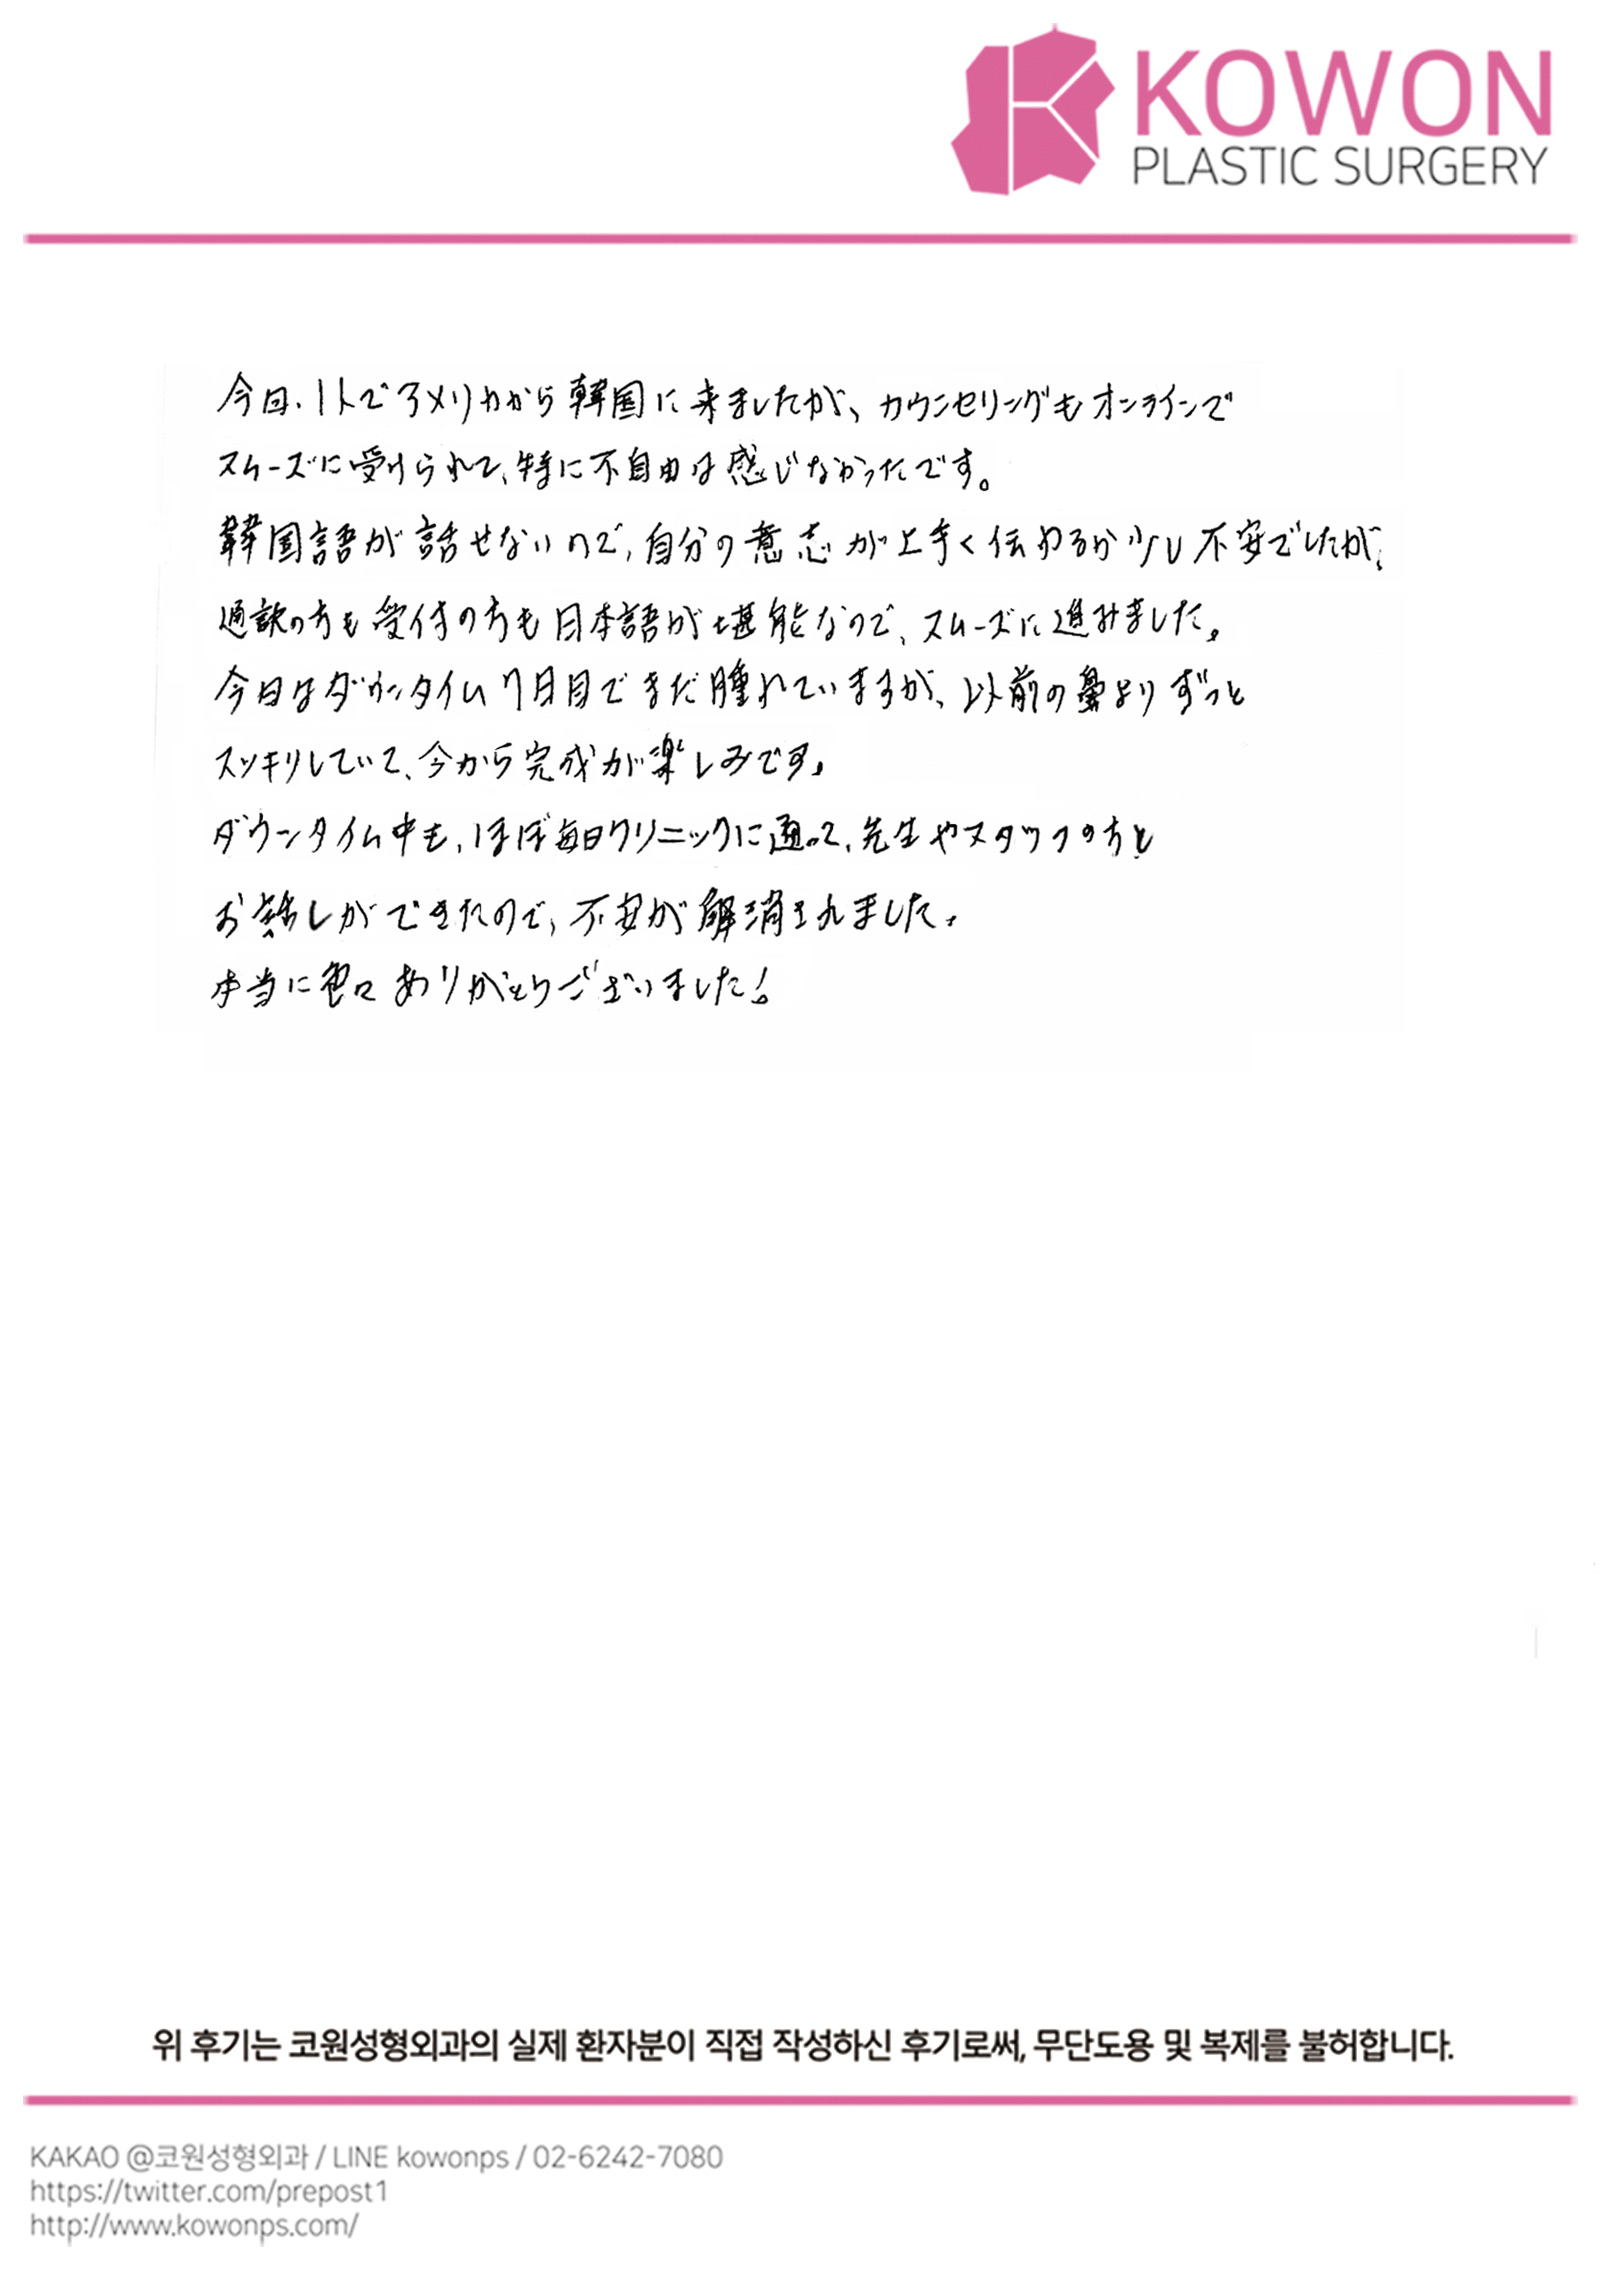 KOWON
PLASTIC SURGERY
今回、1人でアメリカから韓国に来ましたが、カウンセリングもオンラインで
スムーズに受けられて、特に不自由は感じなかったです。
韓国語が話せないので、自分の意志が上手く伝わるか少し不安でしたが、
通訳の方も受付の方も日本語が堪能なので、スムーズに進みました。
今日はダウンタイム7日目でまだ腫れていますが、以前の鼻よりずっと
スッキリしていて、今から完成が楽しみです。
ダウンタイム中も、ほぼ毎日クリニックに通って、先生やスタッフの方と
お話しができたので、不安が解消されました。
本当に色々ありがとうございました!
위 후기는 코원성형외과의 실제 환자분이 직접 작성하신 후기로써, 무단도용 및 복제를 불허합니다.
KAKAO @코원성형외과 / LINE kowonps / 02-6242-7080
https://twitter.com/prepost1
http://www.kowonps.com/